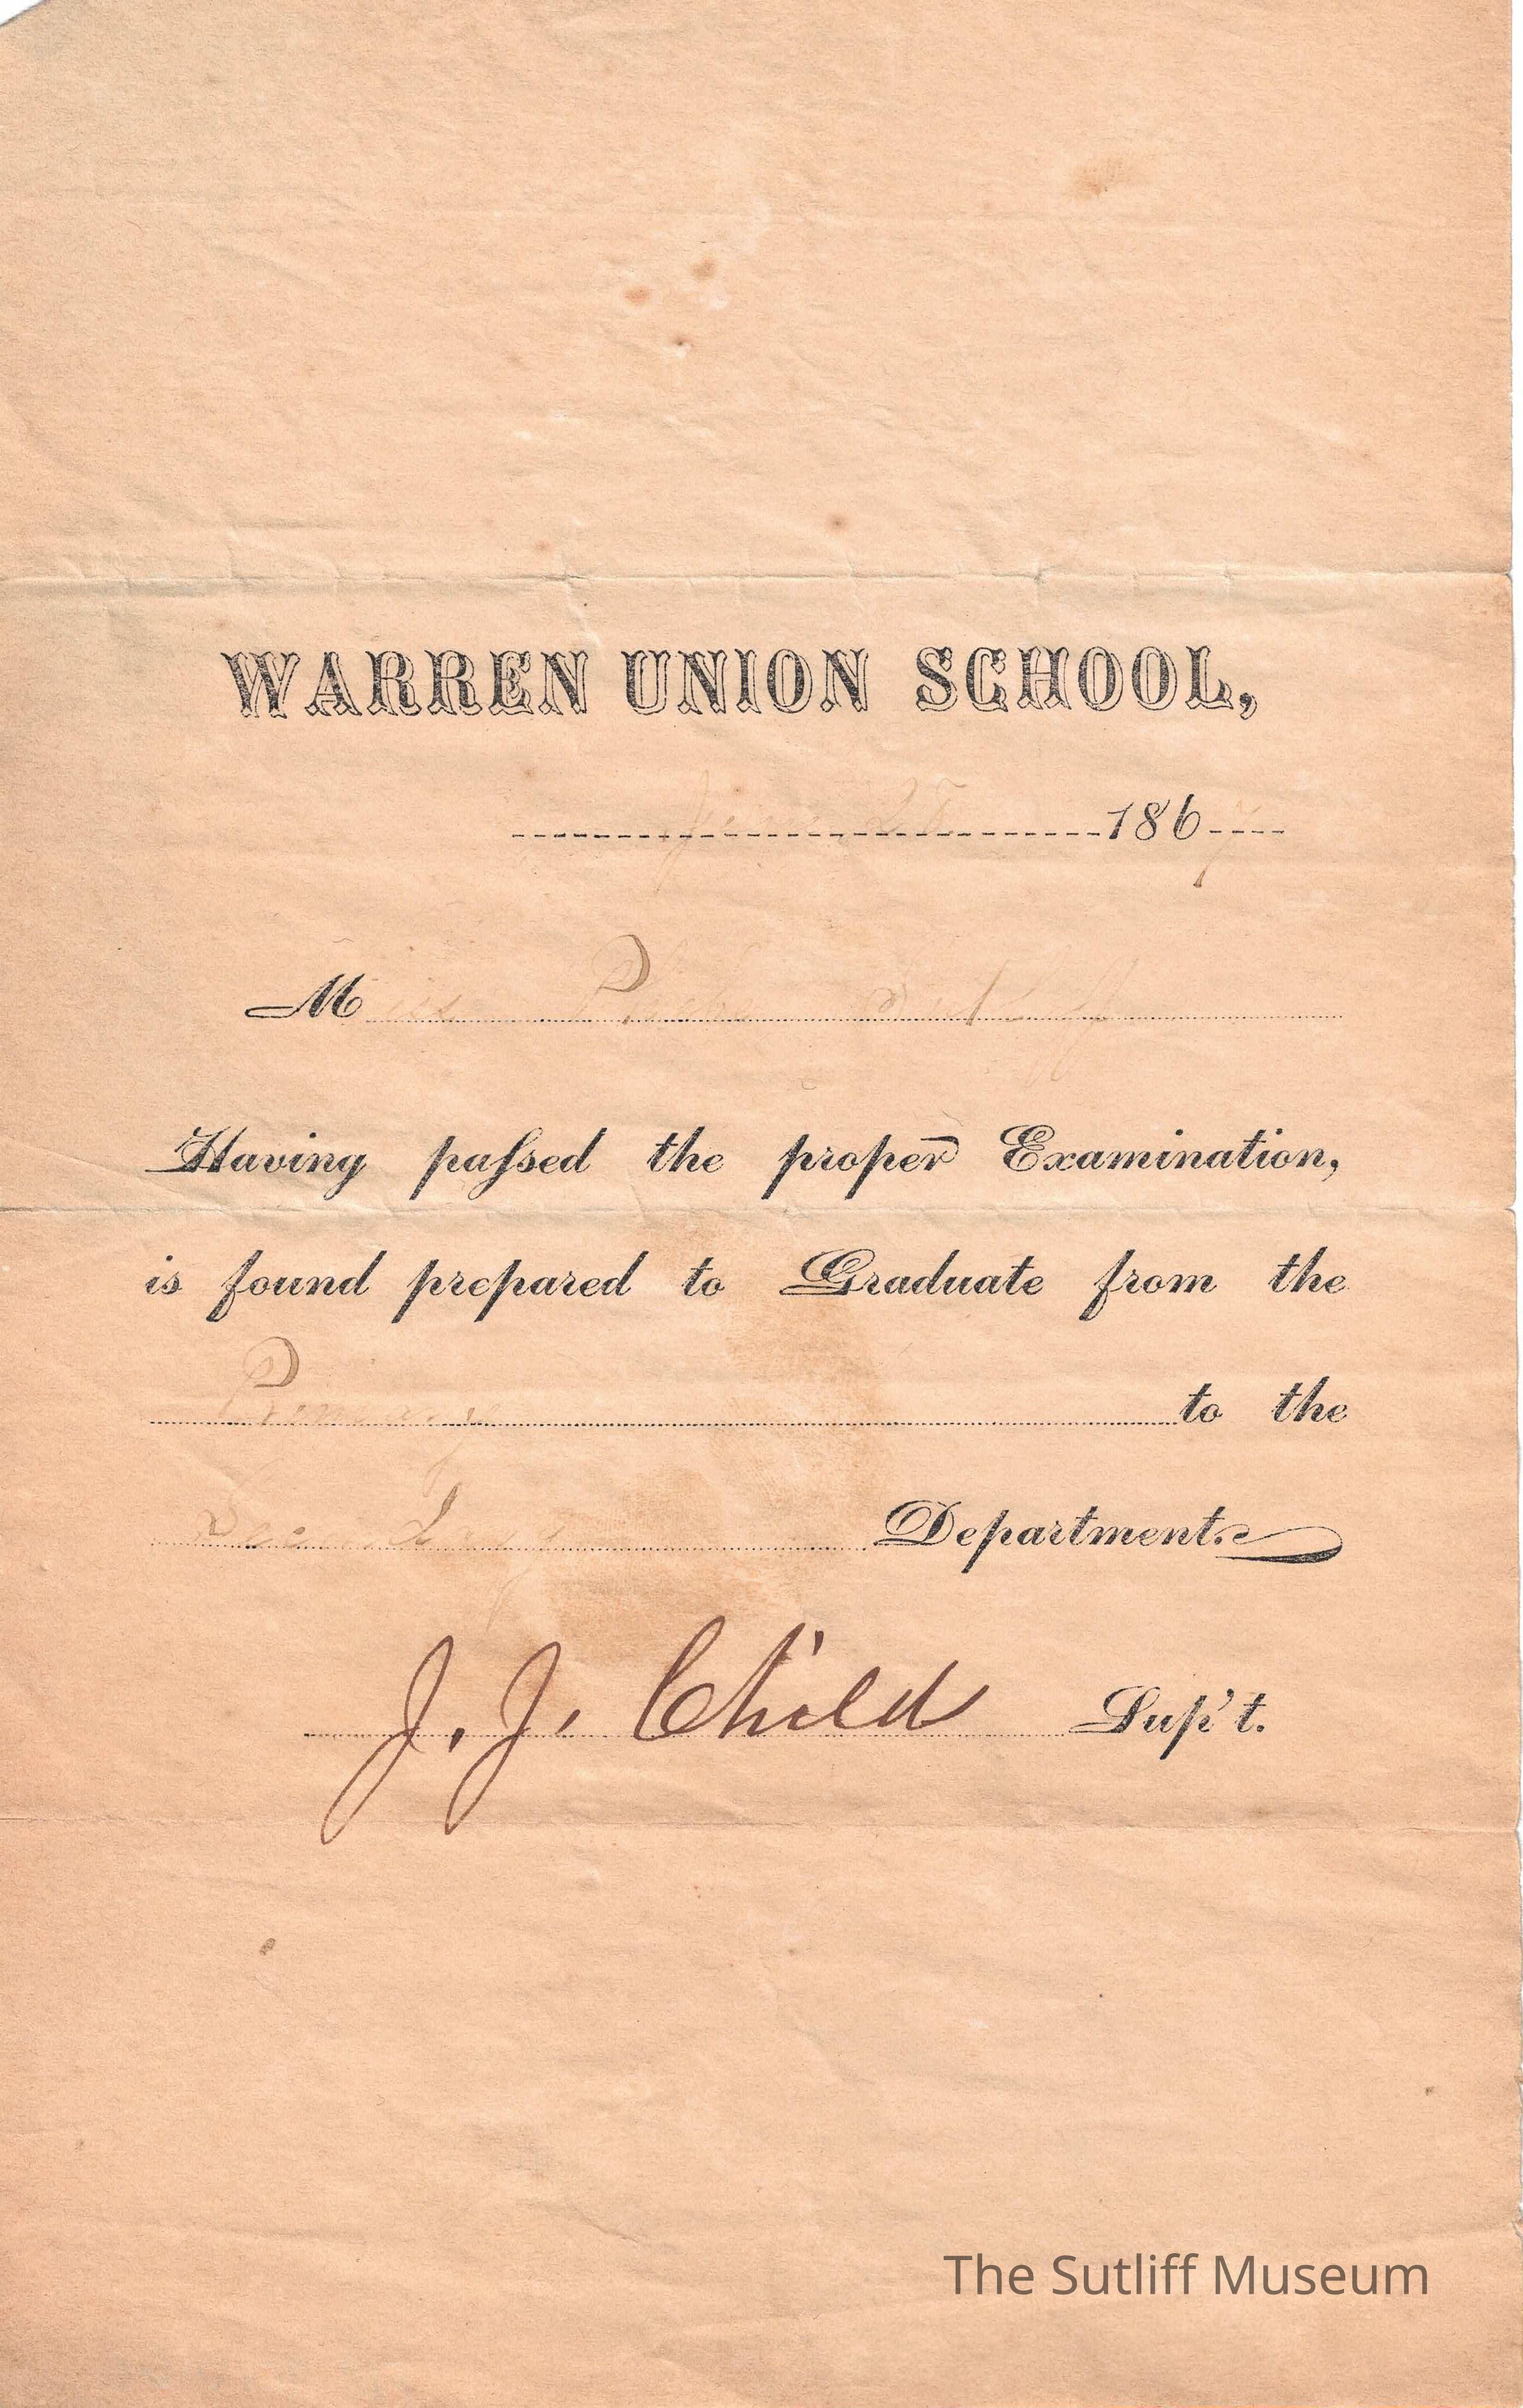 WARREN UNION SCHOOL,
June 25 1867
Miss Phebe Sutliff
Having paſsed the proper Examination,
is found prepared to Graduate from the
Primary to the
Secondary Department.
J. J. Child Sup't.
The Sutliff Museum